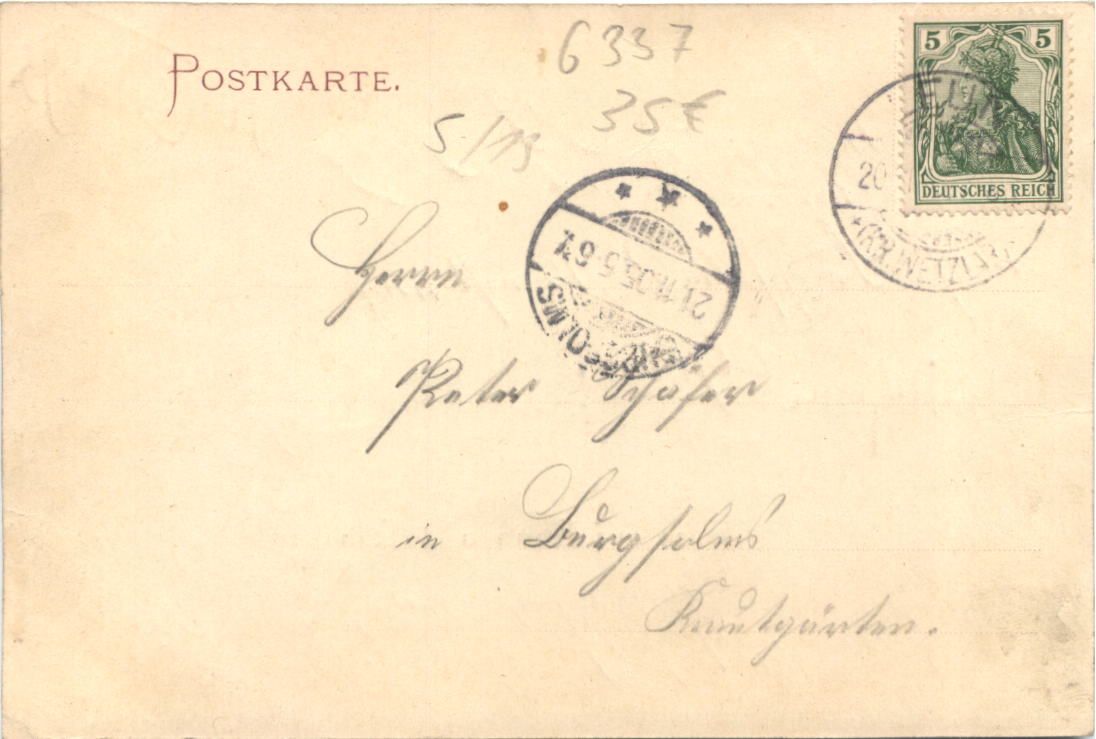 POSTKARTE.
6337
35€
5/19
5 5
DEUTSCHES REICH
20
(KR. WETZLAR)
21.11.05. 5-6 N.
BURGSOLMS
Herrn
Peter Schäfer
in Burgsolms
Krautgärten.